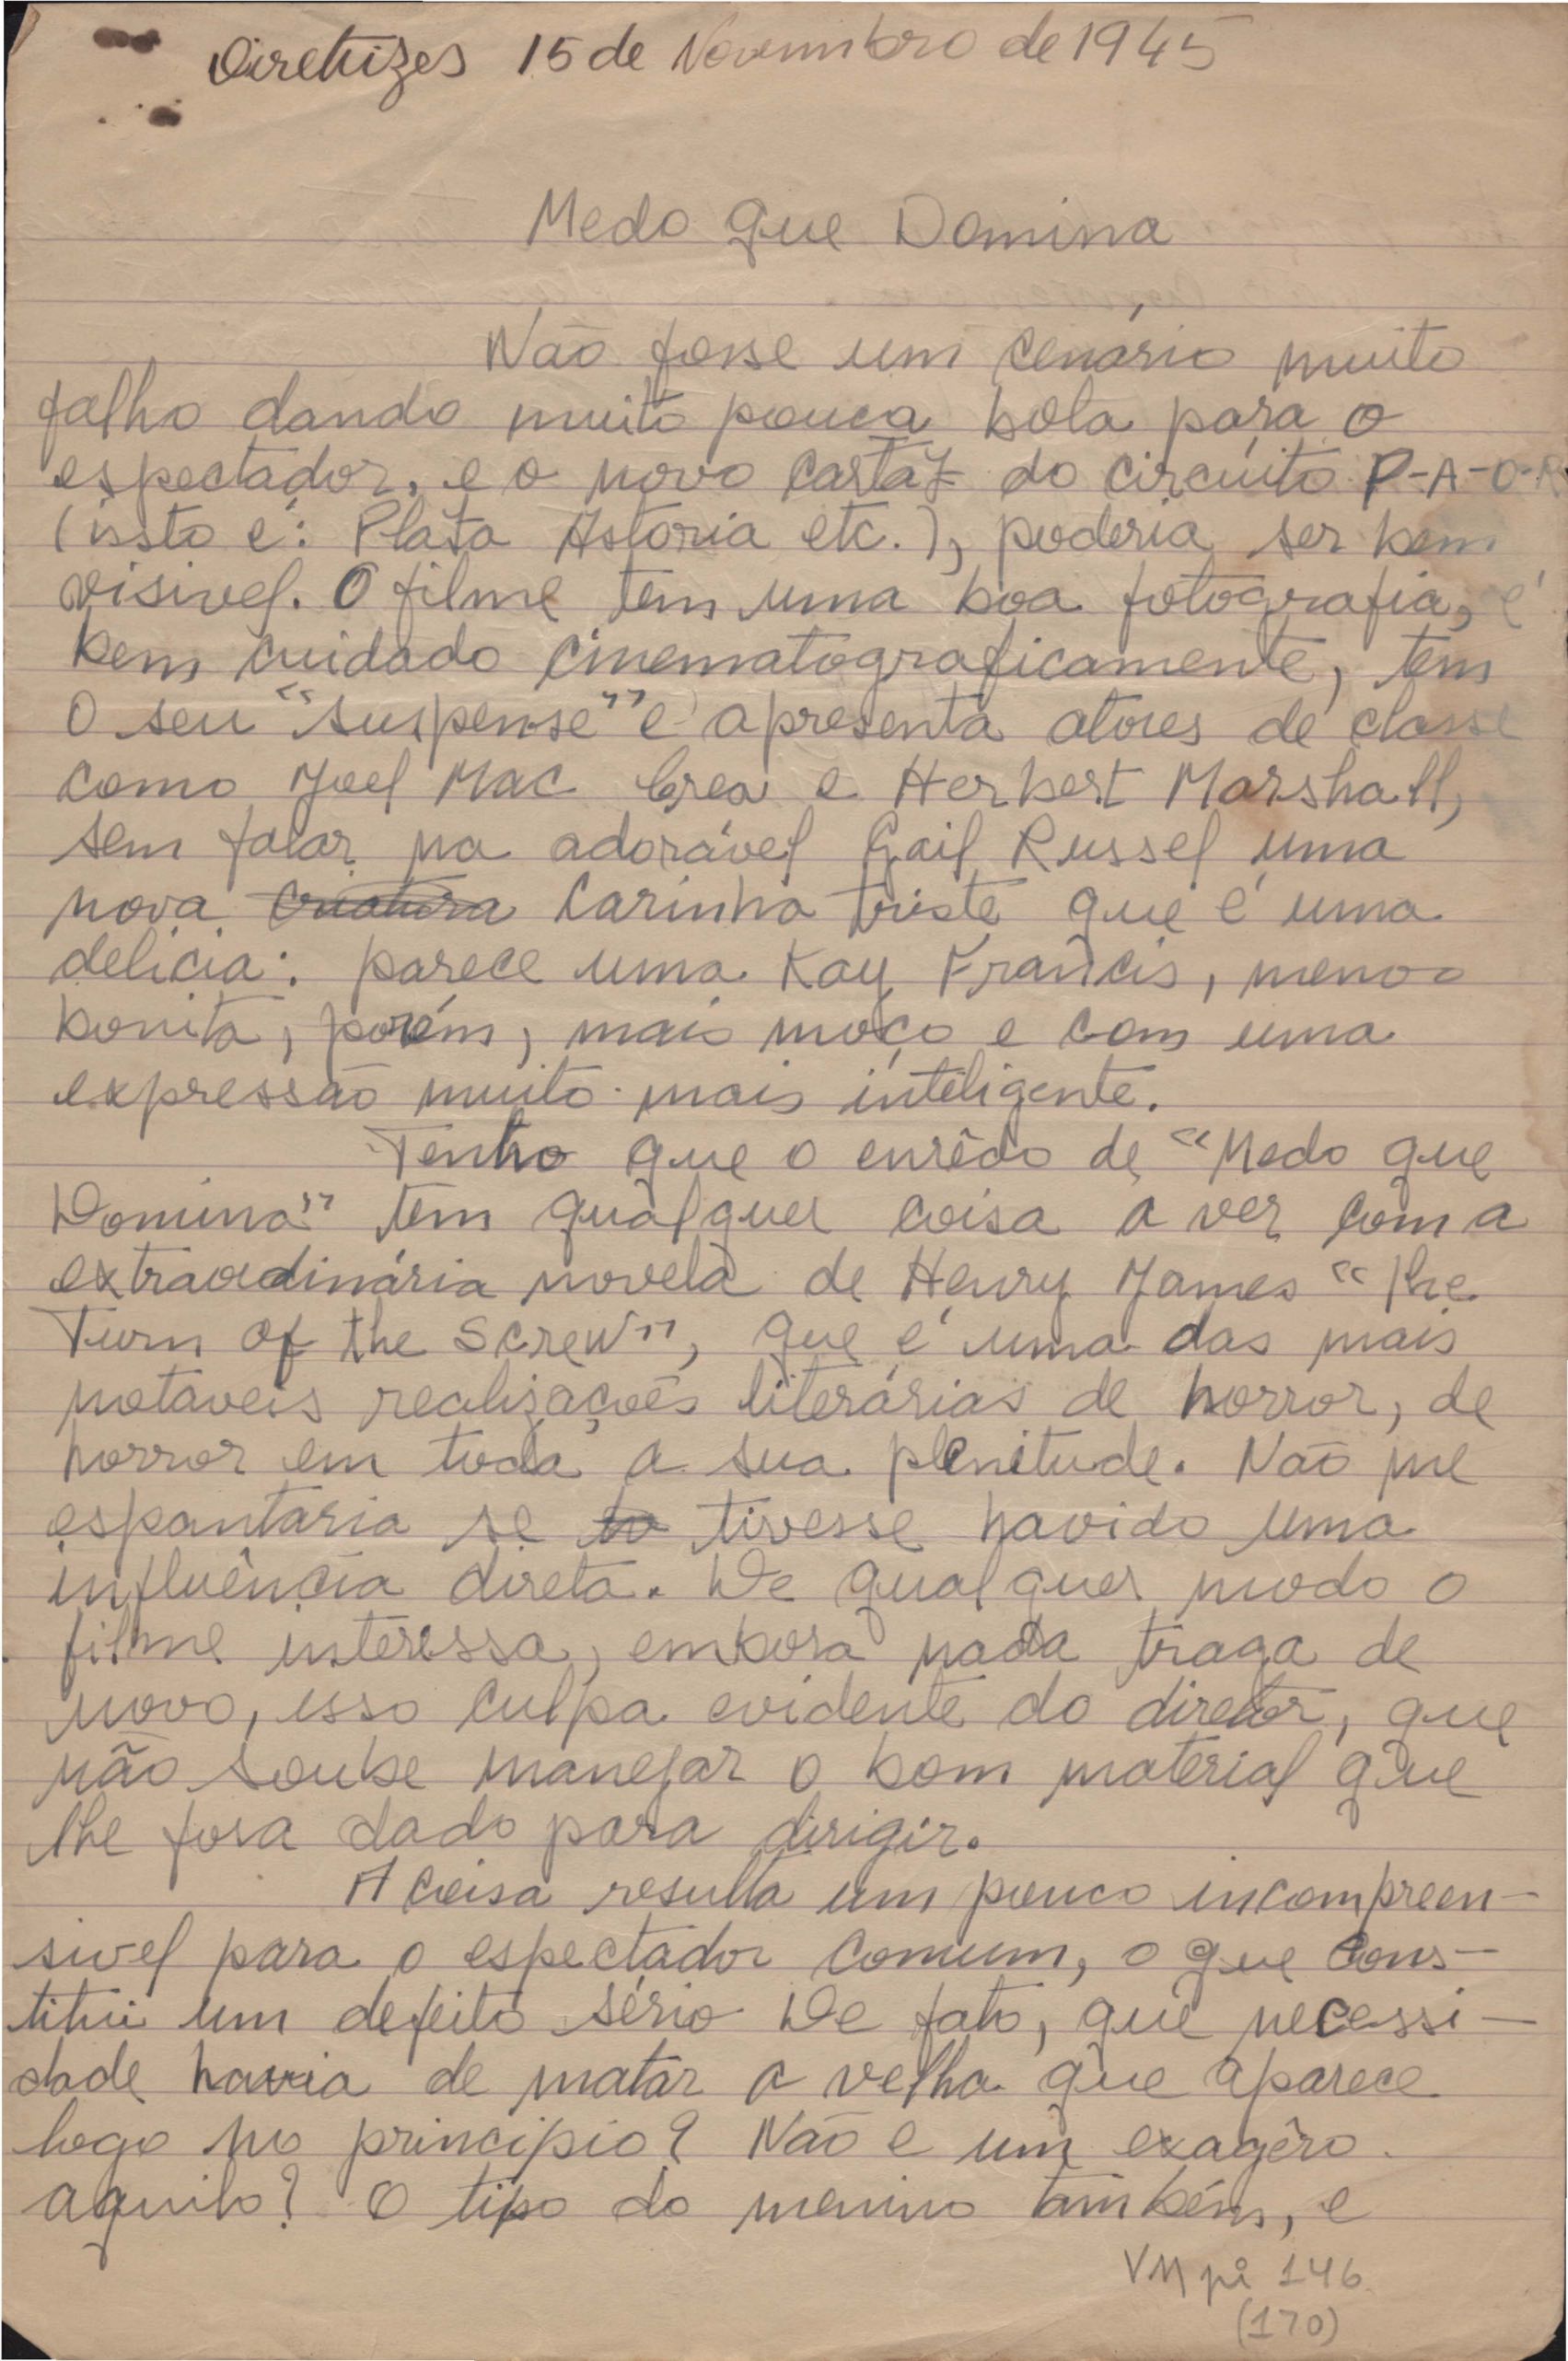 Diretrizes 15 de Novembro de 1945
Medo que Domina
Não fosse um cenário muito
falho dando muito pouca bola para o
espectador, e o novo cartaz do circuito P-A-O-R
(isto é: Plaza Astoria etc.), poderia ser bem
visivel. O filme tem uma boa fotografia, é
bem cuidado cinematograficamente, tem
o seu "suspense" e apresenta atores de classe
como Joel Mac Crea e Herbert Marshall,
sem falar na adorável Gail Russel uma
nova criatura Carinha triste que é uma
delicia: parece uma Kay Francis, menos
bonita, porém, mais moça e com uma
expressão muito mais inteligente.
Tenho que o enrêdo de "Medo que
Domina" tem qualquer coisa a ver com a
extraordinária novela de Henry James "The
Turn of the Screw", que é uma das mais
notaveis realizações literárias de horror, de
horror em toda a sua plenitude. Não me
espantaria se to tivesse havido uma
influência direta. De qualquer modo o
filme interessa, embora nada traga de
novo, isso culpa evidente do diretor, que
não soube manejar o bom material que
lhe fora dado para dirigir.
A coisa resulta um pouco incompreen-
sivel para o espectador comum, o que cons-
titui um defeito sério De fato, que necessi-
dade havia de matar a velha que aparece
logo no principio? Não e um exagêro
aquilo? O tipo do menino também, e
VM pi 146
(170)